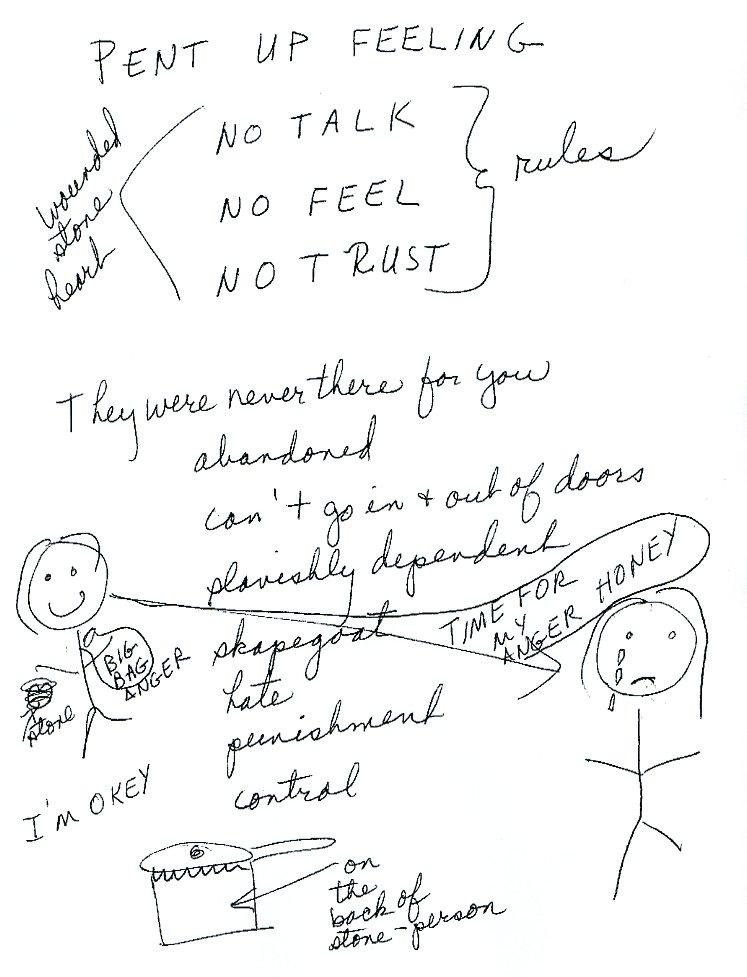 PENT UP FEELING
NO TALK
NO FEEL
NO TRUST
rules
wounded
stone
heart
They were never there for you
abandoned
can't go in + out of doors
slavishly dependent
skapegoat
hate
punishment
control
TIME FOR
MY
ANGER HONEY
BIG
BAG
ANGER
stone
I'M OKEY
on
the
back of
stone-person